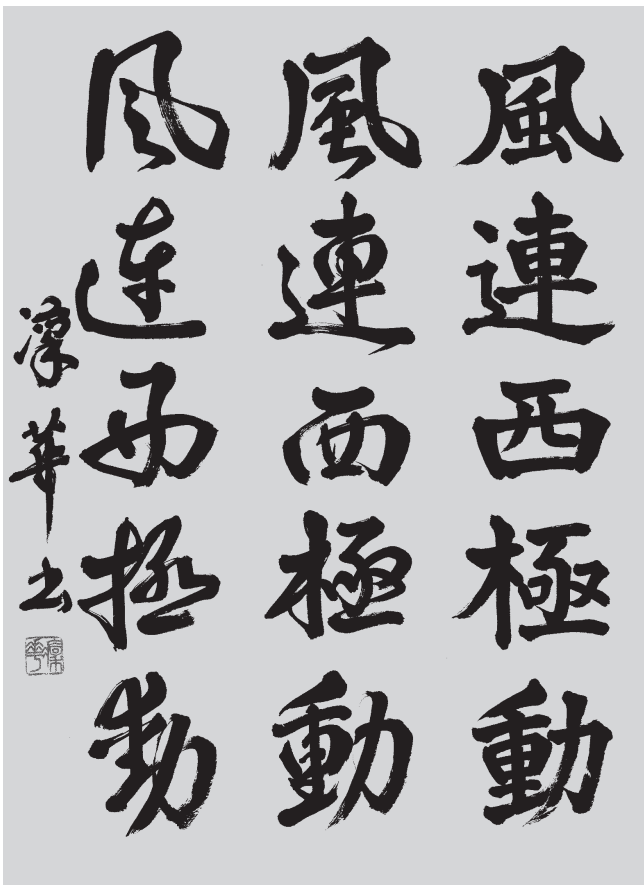 風連西極動
風連西極動
風連西極動
凜華書